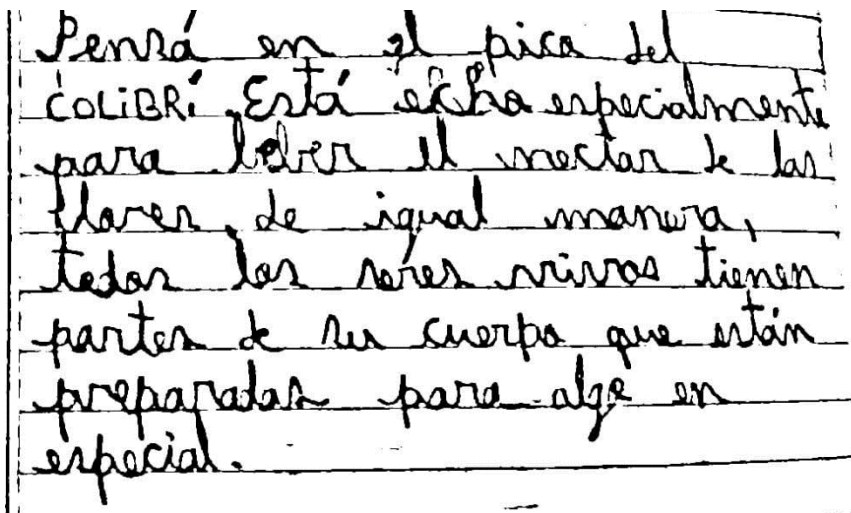 Pensá en el pico del
COLiBRí. Está echo especialmente
para beber el nectar de las
flores, de igual manera,
todos los seres vivos tienen
partes de su cuerpo que están
preparadas para algo en
especial.